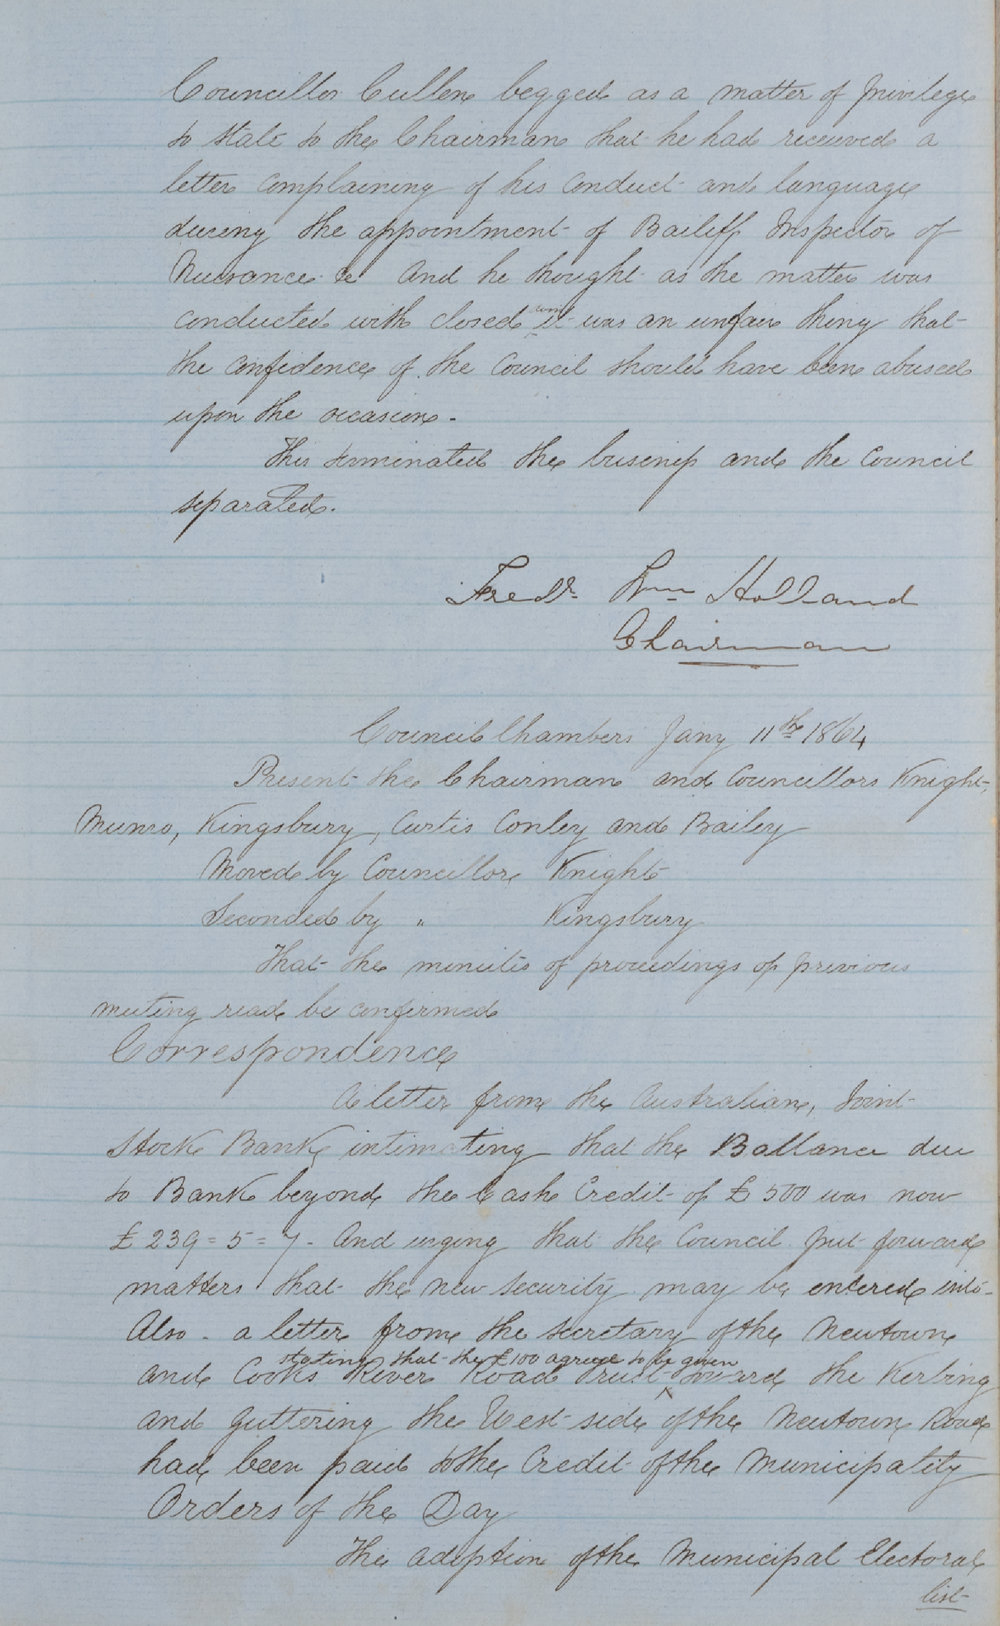 Councillor Cullen begged as a matter of privilege
to state to the Chairman that he had received a
letter complaining of his conduct and language
during the appointment of Bailiff Inspector of
Nuisance &c And he thought as the matter was
conducted with closed it was an unfair thing that
the confidence of the Council should have been abused
upon the occasion -
This terminated the business and the Council
separated.
Fredk. Wm Holland
Chairman
Council Chambers Jany 11th 1864
Present the Chairman and Councillors Knight,
Munro, Kingsbury, Curtis Conley and Bailey
Moved by Councillor Knight
Seconded by " Kingsbury
That the minutes of proceedings of previous
meeting read be confirmed
Correspondence
A letter from the Australian, Joint
Stock Bank, intimating that the Ballance due
to Bank beyond the Cash Credit of £500 was now
£239=5=7 - And urging that the Council put forward
matters that the new security may be entered into -
Also - a letter from the secretary of the Newtown
stating that the £100 agreed to be given
and Cooks River Road Trust toward the Kerbing
and guttering the West side of the Newtown Road
had been paid to the Credit of the Municipality
Orders of the Day
The adoption of the Municipal Electoral
list